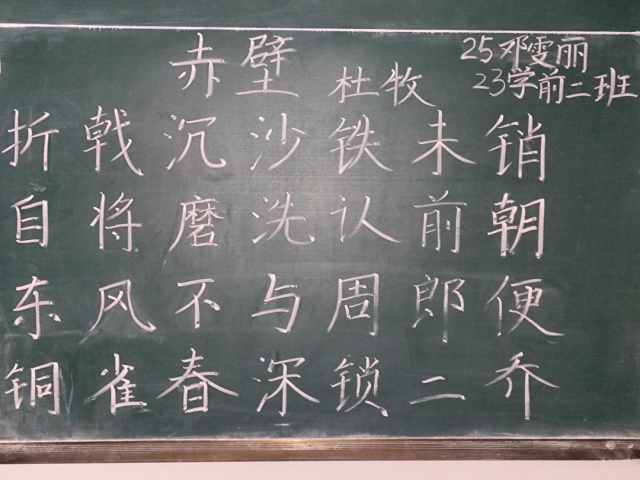 赤壁
杜牧
25邓雯丽
23学前二班
折戟沉沙铁未销
自将磨洗认前朝
东风不与周郎便
铜雀春深锁二乔